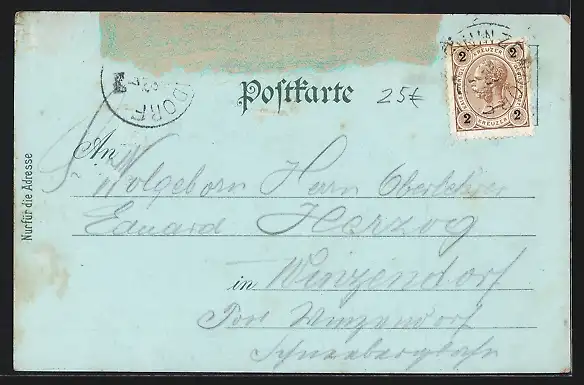 Postkarte
25€
2 KREUZER 2
2 KREUZER 2
DORF
An
Wolgeborn Herrn Oberlehrer
Eduard Herzog
in Winzendorf
Post Winzendorf
Schneebergbahn
Nur für die Adresse